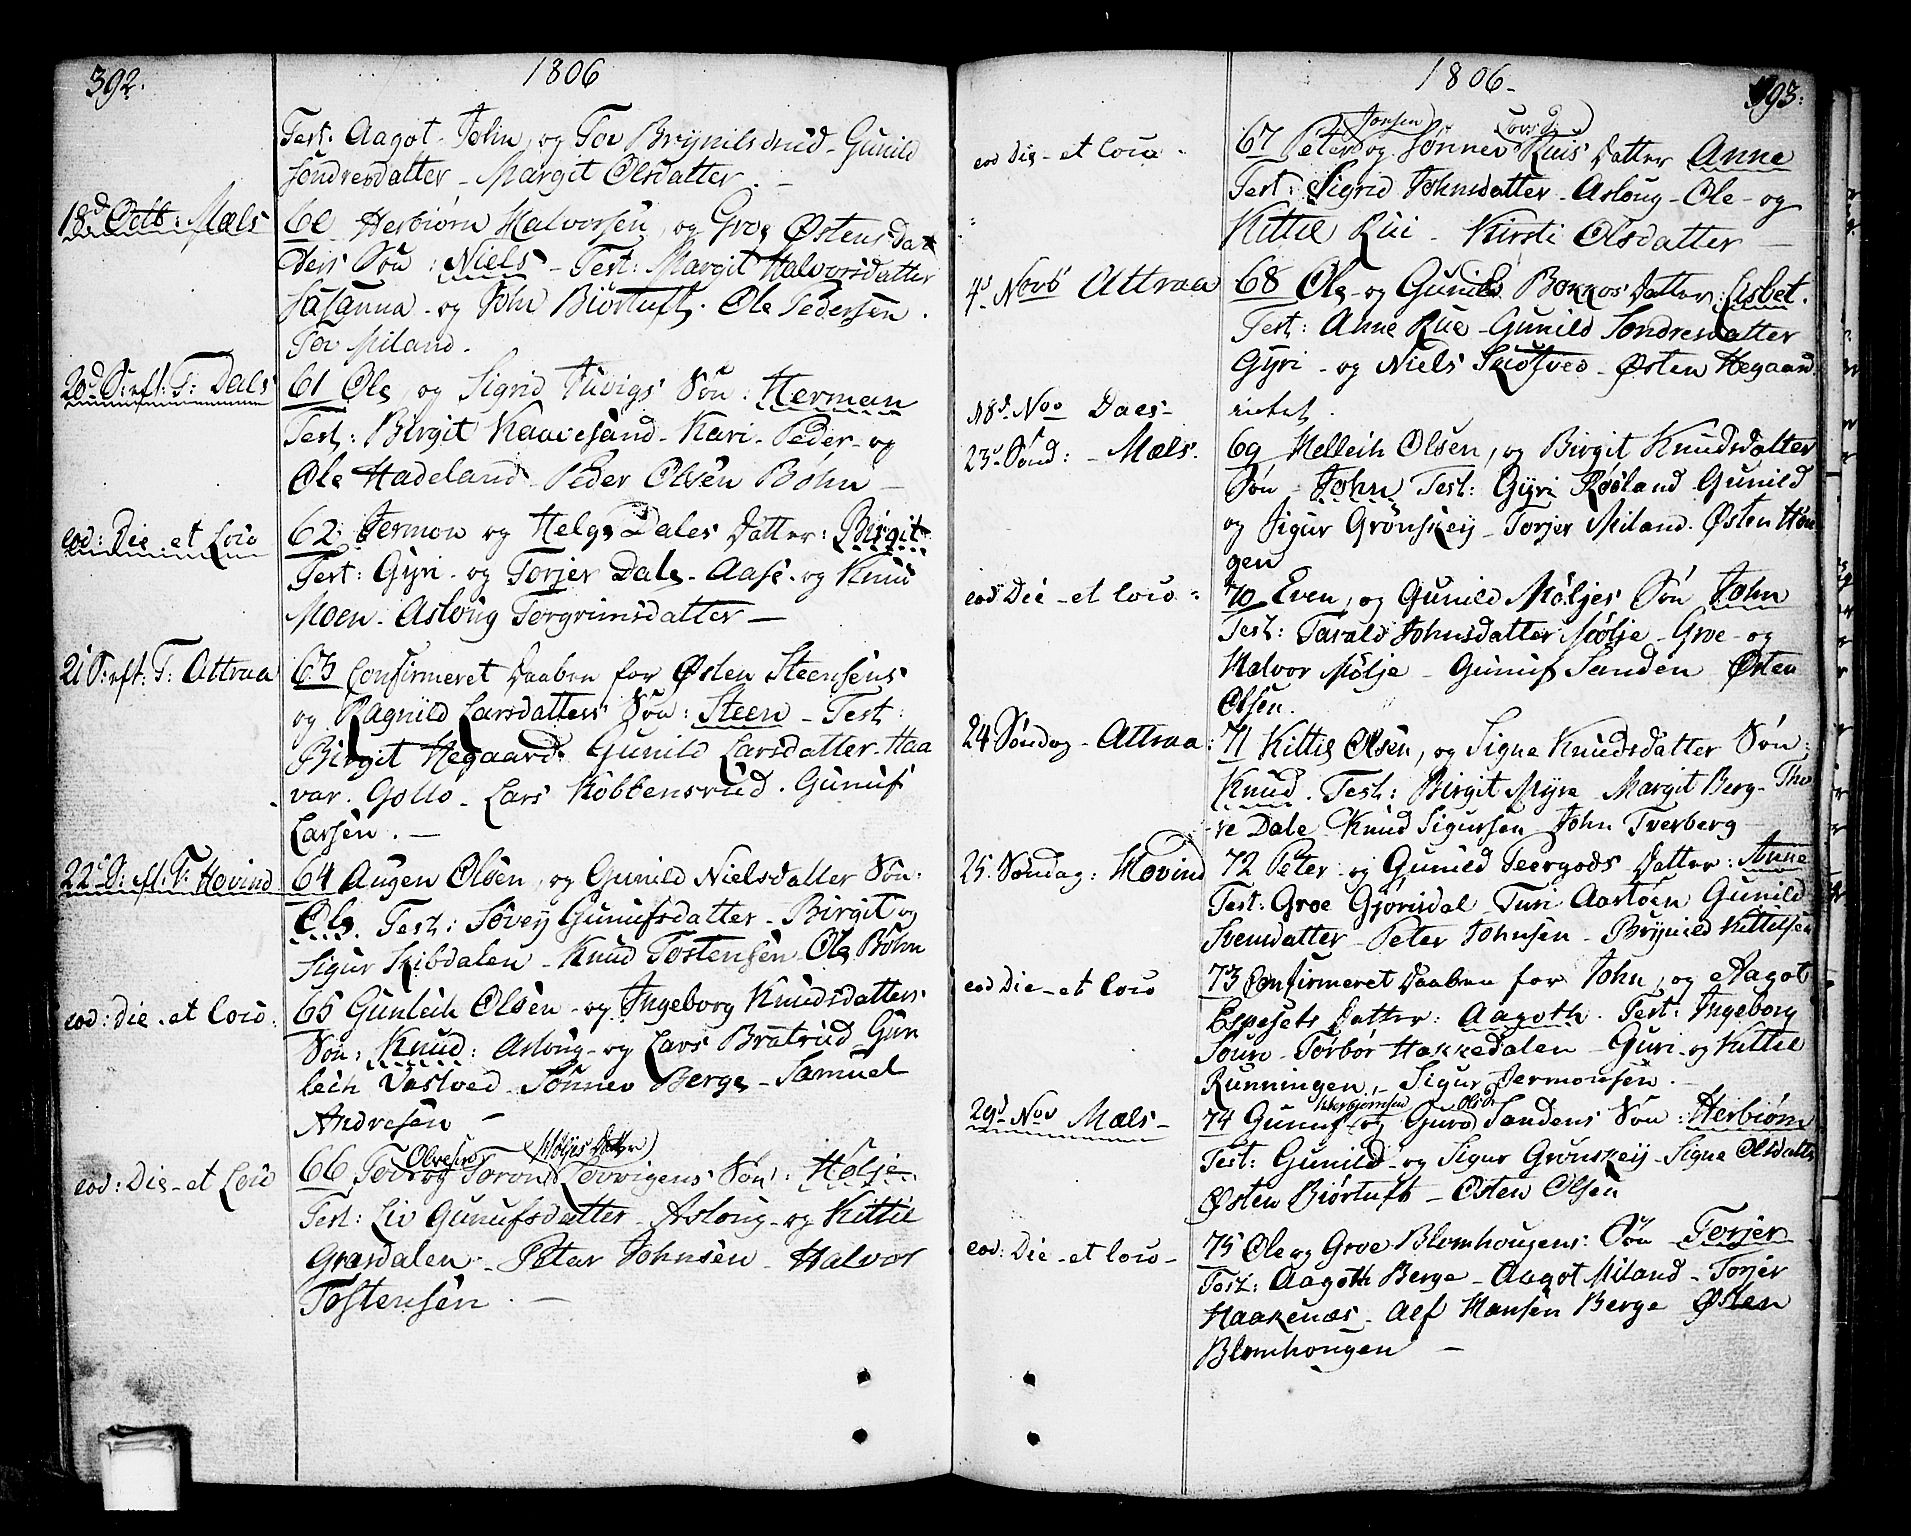 392.
1806
Test: Aagot. John, og Tov Brynilsdrud - Gunild
Sondresdatter - Margit Olsdatter. -
18d Octb: Mæls
60 Herbiørn Halvorsen, og Groe Østensdat
ters Søn: Niels - Test: Margit Halvorsdatter
Susanna - og John Biørtuft. Ole Pedersen.
Tov Miland.
20d S: eft: T: Dals
61 Ole, og Sigrid Tuvigs Søn: Herman
Test: Birgit Kaavesand - Kari - Peder - og
Ole Hadeland - Peder Olsen Bøhn -
eod: Die et Loco
62 Jermon og Helge Dales Datter: Birgit
Test: Gyri - og Torjer Dale - Aase - og Knud
Moen - Asloug Torgrimsdatter -
21 S: eft: T. Attraa
63 Confirmeret Daaben for Østen Steensens
og Ragnild Larsdatters Søn: Steen - Test:
Birgit Hegaard. Gunild Larsdatter - Haa
var. Gollo - Lars Kobbensrud. Gunuf
Larsen. -
22d S: eft: T: Hovind
64 Augen Olsen, og Gunild Nielsdatter Søn:
Ole. Test: Søvey Gunufsdatter - Birgit og
Sigur Skibdalen - Knud Tostensen - Ole Bøhn
eod: die - et Loco:
65 Gunleik Olsen - og Ingeborg Knudsdatters
Søn: Knud: Asloug - og Lars Bratrud - Gun
leik Vastved - Sønnev Berge - Samuel
Andresen -
eod: Die - et Loco
Olvesens (Høljes Datter)
66 Tov og Toron Lovvigens Søn: Hølje
Test: Liv Gunufsdatter - Aslong - og Kittil
Grasdalen - Peter Johnsen - Halvor
Tostensen. -
1806.
393:
eod Die - et Loco -
Jonsen Tovsd:
67 Peter og Sønnev Ruis Datter Anne
Test: Sigrid Johnsdatter - Asloug - Ole - og
Kittil Rui - Kirsti Olsdatter -
4d Novb Attraa
68 Ole - og Gunild Bakkos Datter: Lisbet.
Test: Anne Rue - Gunild Sondresdatter
Gyri - og Niels Skiøtved - Østen Hegaard
18d Nov Daes -
23d Sønd: - Mæls.
69 Helleik Olsen, og Birgit Knudsdatter
Søn - John Test: Gyri Røisland Gunild
og Sigur Grønskeij - Torjer Miland. Østen Hou
gen
eod Die - et Loco:
70 Even, og Gunild Møljes Søn John
Test: Tarald Johnsdatter Mølje - Groe - og
Halvor Mølje - Gunuf Sanden Østen
Olsen.
24 Søndag - Attraa:
71 Kittil Olsen, og Signe Knudsdatter Søn:
Knud. Test: Birgit Myre - Margit Berg - Tho
re Dale - Knud Sigursen John Tverberg -
25. Søndag: Hovind
72 Peter - og Gunild Teergods Datter: Anne
Test: Groe Gjørisdal - Turi Aastøen Gunild
Svensdatter - Peter Johnsen - Brynild Kittelsen
eod Die - et Loco
73 Confirmeret Daaben for John, og Aagot
Espesets Datter: Aagoth. Test: Ingeborg
Souri - Torbør Hakkedalen - Guri - og Kittil
Runningen, - Sigur Jermonsen. -
29d Nov Mæls -
Herbjørnsen Olsd
74 Gunuf og Guro Sandens Søn: Herbiørn
Test: Gunild - og Sigur Grønskeij - Signe Olsdatter
Østen Biørtuft - Østen Olsen
eod: Die - et Loco -
75 Ole og Groe Blomhougens: Søn - Torjer
Test: Aagoth Berge - Aagot Miland - Torjer
Haakenæs - Alf Hansen Berge Østen
Blomhougen -